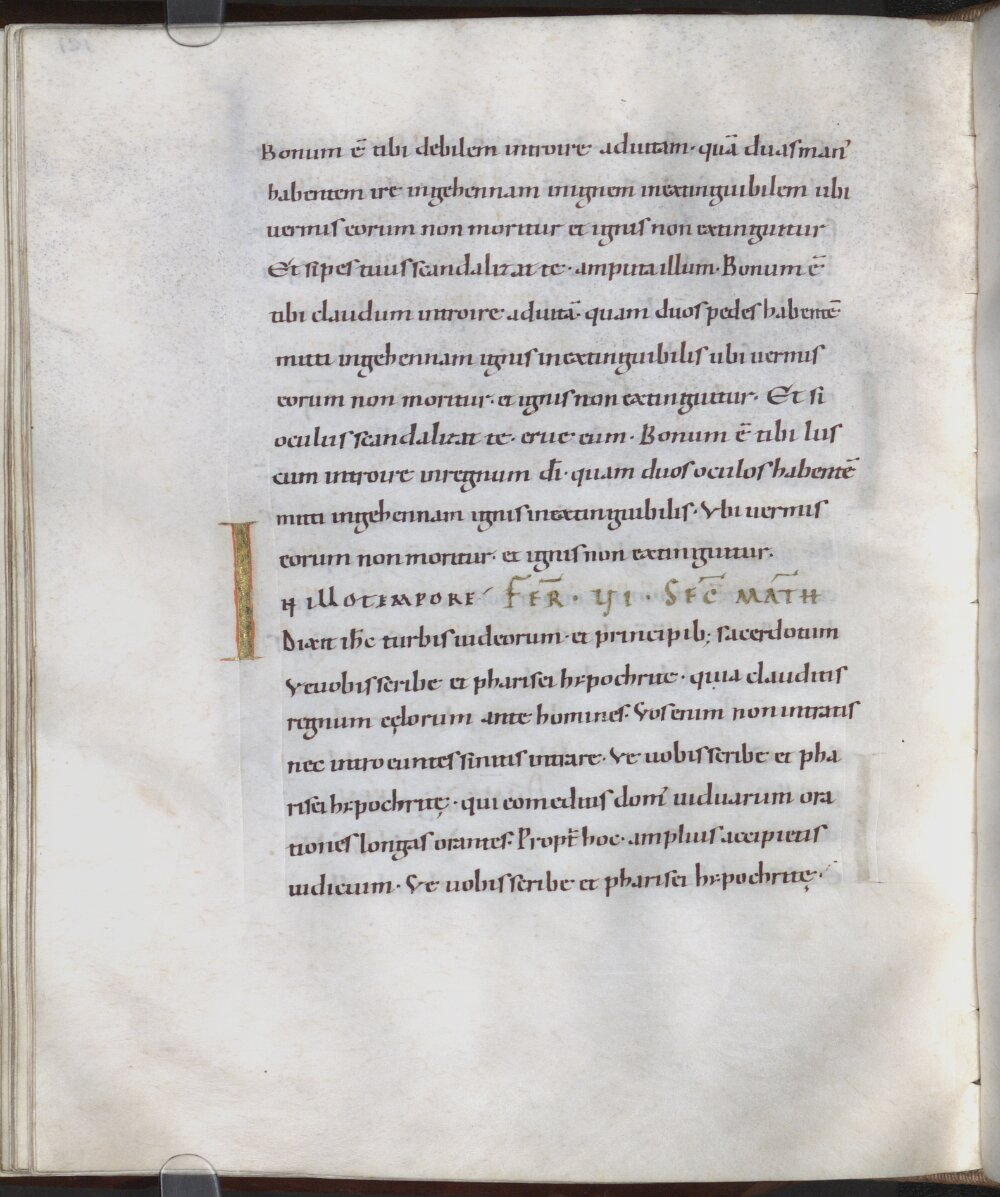 Bonum ē tibi debilem introire aduitam· quā duasman̄
habentem ire ingehennam inignem inextinguibilem ubi
uermis eorum non moritur et ignis non extinguitur
Et si pes tuus scandalizat te· amputa illum· Bonum ē
tibi claudum introire aduitā· quam duos pedes habentē
mitti ingehennam ignis inextinguibilis ubi uermis
eorum non moritur· et ignis non extinguitur· Et si
oculus scandalizat te· erue eum· Bonum ē tibi lus
cum introire inregnum dī· quam duos oculos habentē
mitti ingehennam ignis inextinguibilis· Vbi uermis
eorum non moritur· et ignis non extinguitur·
IN illo tempore· FER̄· VI· SEC̄ MATH̄
Dixit ihc̄ turbis iudeorum· et principib; sacerdotum
Ve uobis scribe et pharisei hypochrite· quia clauditis
regnum cęlorum ante homines· Vos enim non intratis
nec introeuntes sinitis intrare· Ve uobis scribe et pha
risei hypochritę· qui comeditis dom̄ uiduarum ora
tiones longas orantes· Propt̄ hoc· amplius accipietis
iudicium· Ve uobis scribe et pharisei hypochritę·